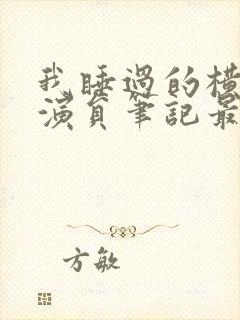 我睡過的橫
演員筆記最
方敏